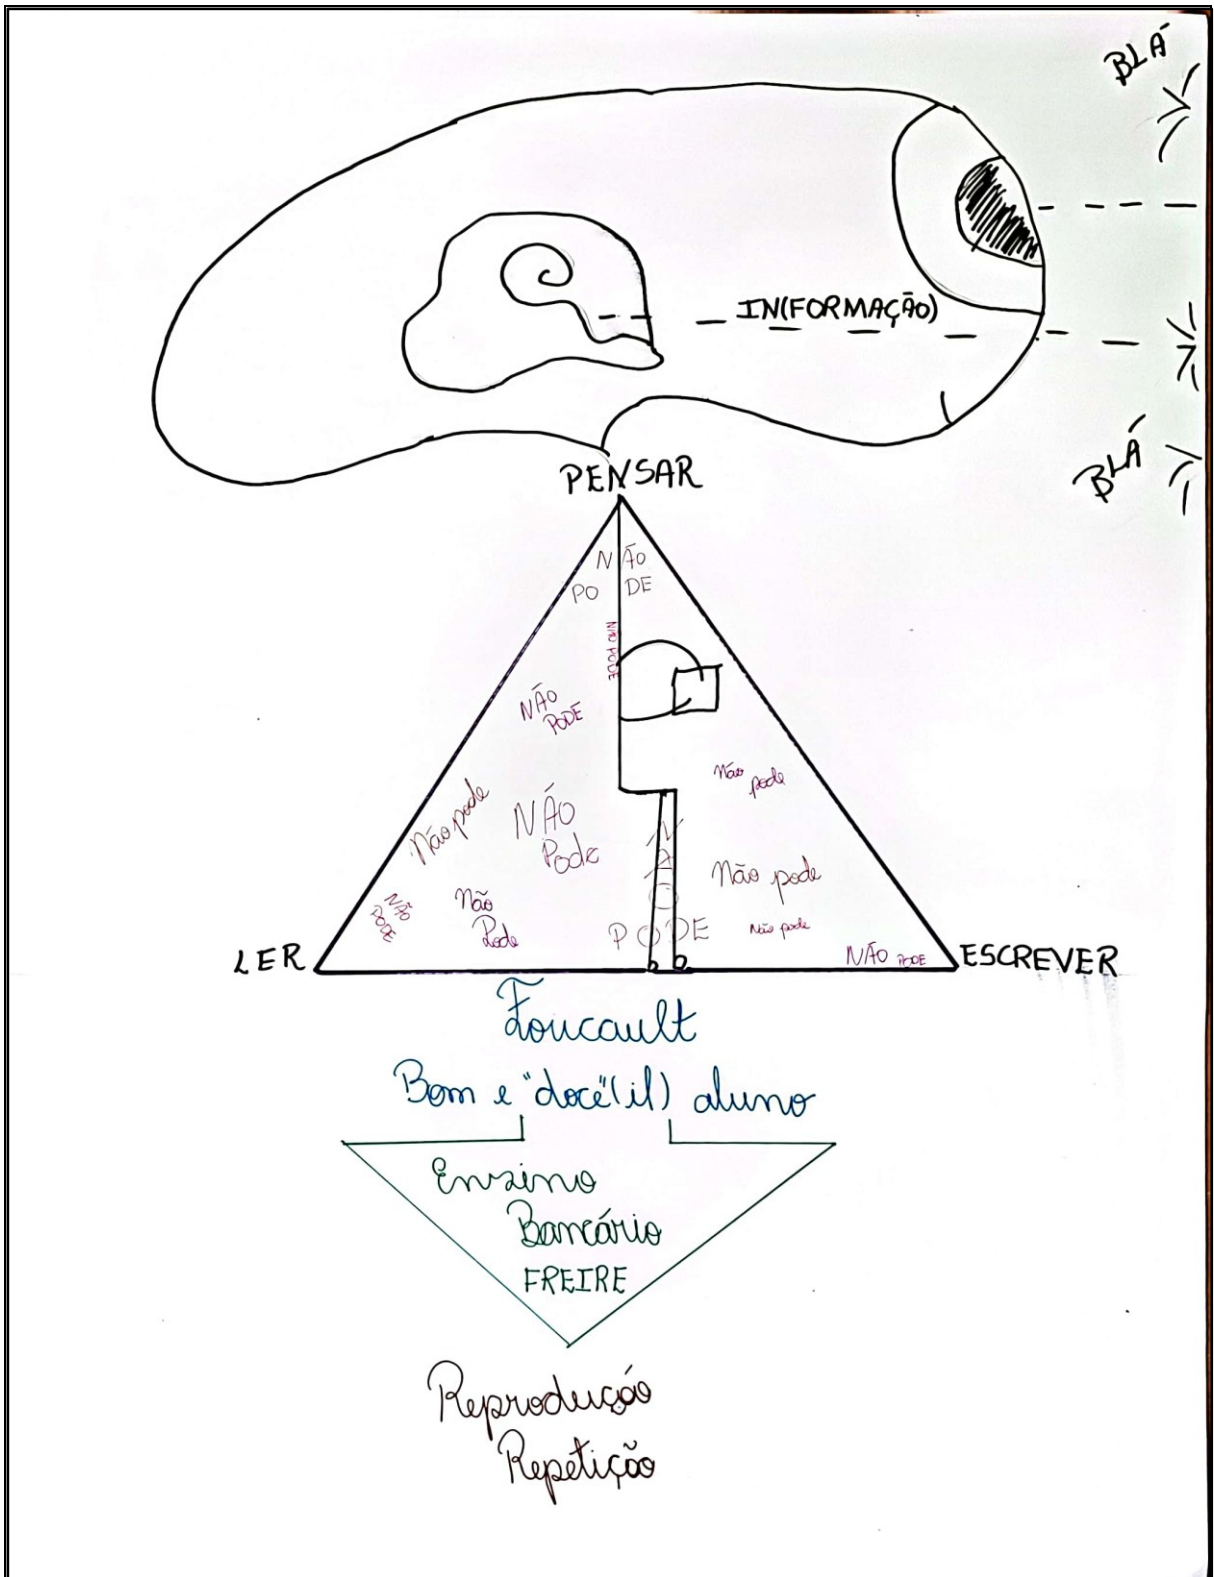 BLÁ
IN(FORMAÇÃO)
BLÁ
PENSAR
NÃO
PODE
NÃO PODE
NÃO
PODE
Não
pode
Não pode
NÃO
Pode
NÃO
PODE
Não
Pode
Não pode
NÃO
PODE
Não pode
NÃO PODE
LER
ESCREVER
Foucault
Bom e "doce"(il) aluno
Ensino
Bancário
FREIRE
Reprodução
Repetição